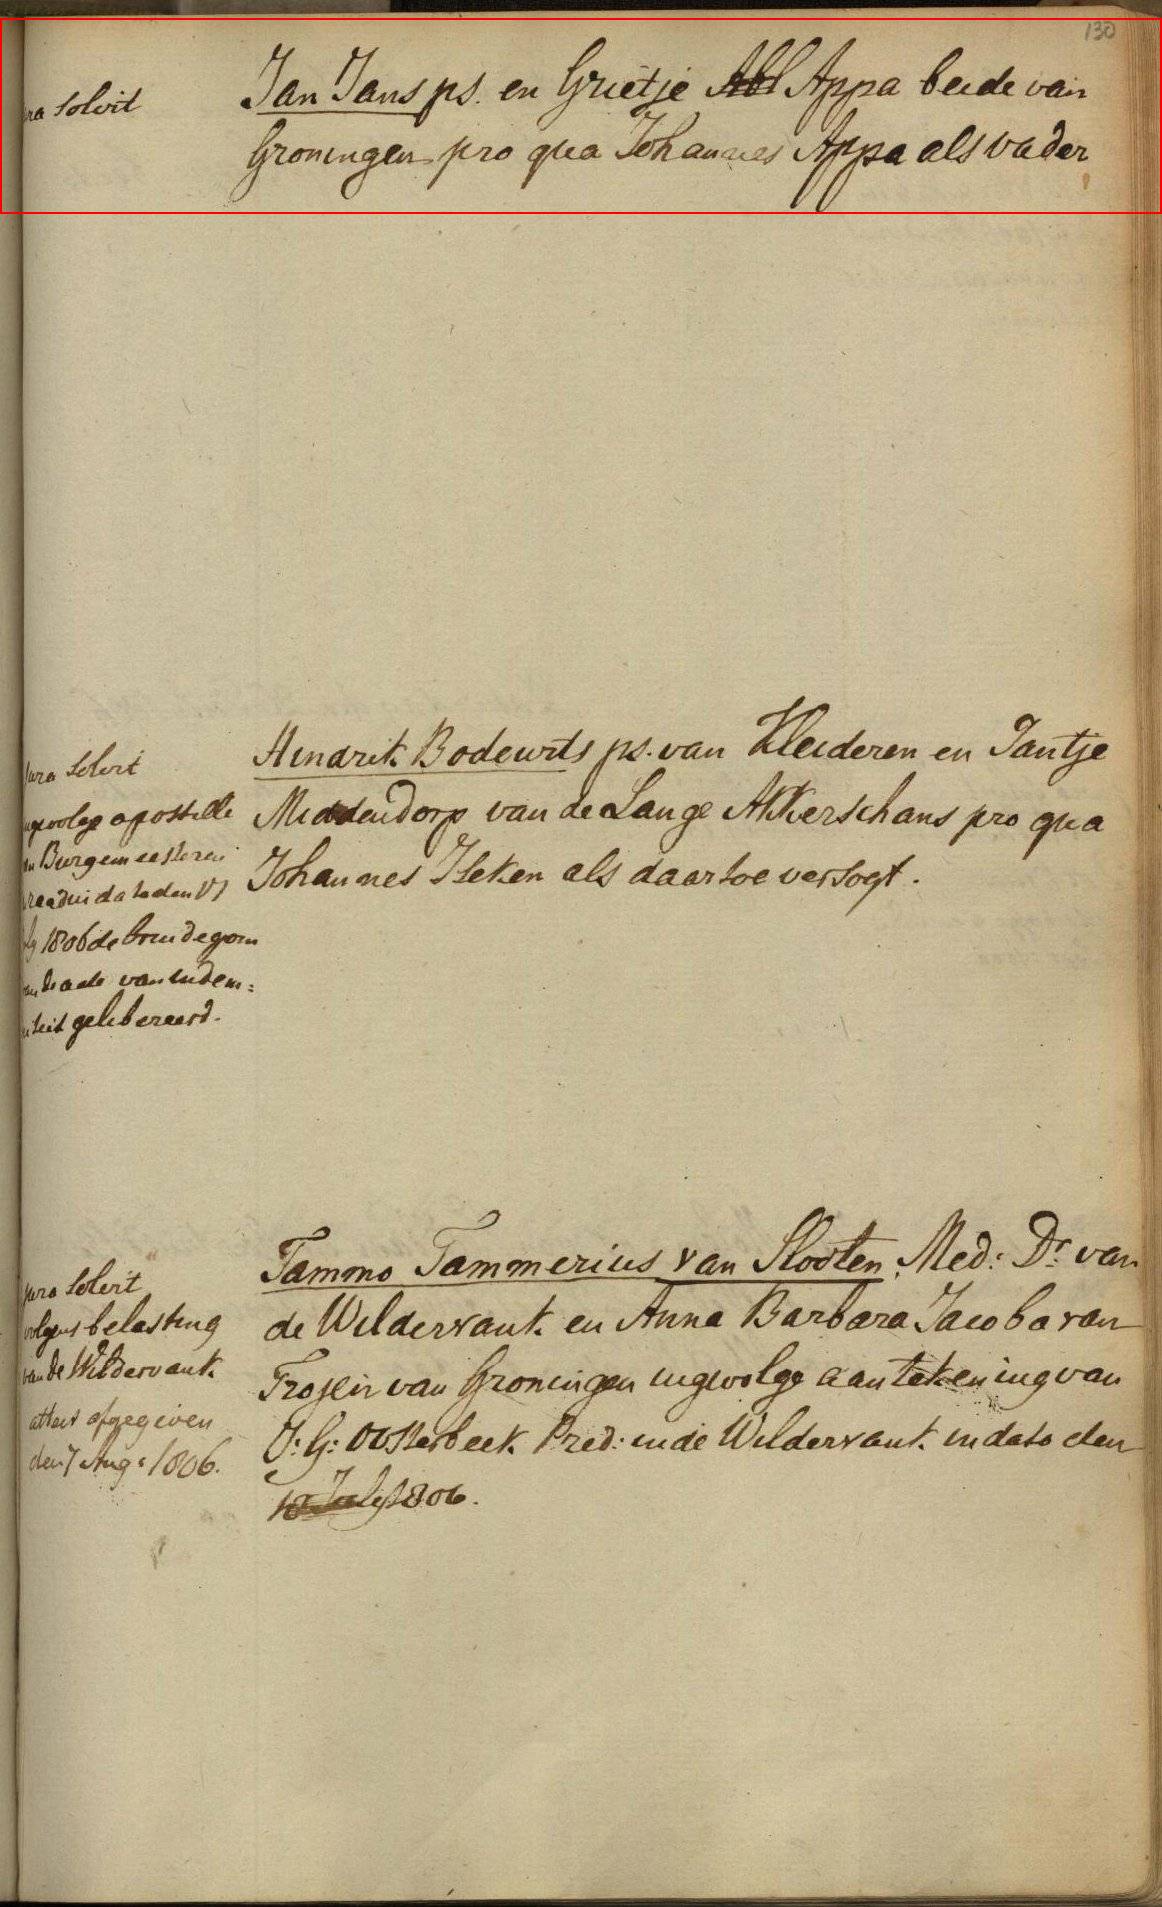 130
ra solvit
Jan Jans ps. en Grietje Abl Appa beide van
Groningen pro qua Johannes Appa als vader
Jura solvit
ngevolge apostille
an Burgemeesteren
raad in dato den 17
ly 1806 de bruidegom
van de acte van indem:
niteit gelibereerd.
Hindrik Bodewits ps. van Kleideren en Jantje
Middendorp van de Lange Akkerschans pro qua
Johannes Ileken als daartoe versogt.
jura solvit
volgens belasting
van de Wildervank.
attest afgegeven
den 7 Aug: 1806.
Tammo Tammerius van Slooten, Med: Dr: van
de Wildervank. en Anna Barbara Jacoba van
Trojen van Groningen ingevolge aantekening van
J: G: Oosterbeek. Pred: in de Wildervank. in dato den
18 July 1806.